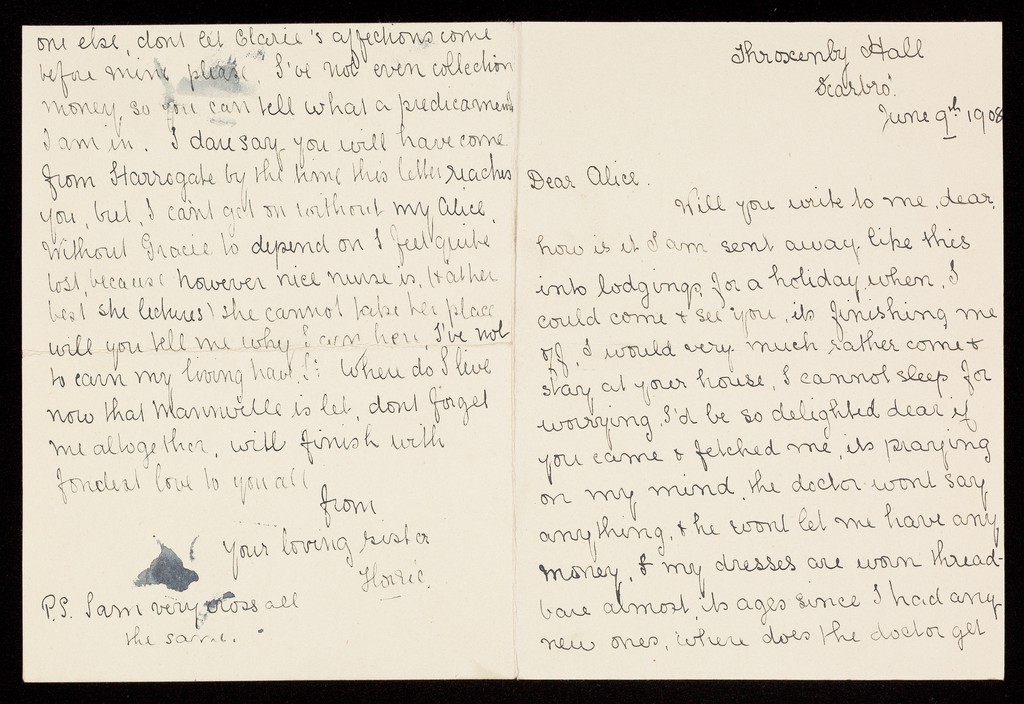 Throxenby Hall
Scarbro'
June 9th 1908
Dear Alice.
Will you write to me, dear,
how is it I am sent away like this
into lodgings, for a holiday, when, I
could come & see you, its finishing me
off, I would very much rather come &
stay at your house, I cannot sleep for
worrying, I'd be so delighted dear if
you came & fetched me, its praying
on my mind, the doctor wont say
anything, & he wont let me have any
money, & my dresses are worn thread-
bare almost, its ages since I had any
new ones, where does the doctor get
one else, dont let Clarie's affections come
before mine please, I've not even collection
money, so you can tell what a predicament
I am in. I daresay you will have come
from Harrogate by the time this letter reaches
you, but, I cant get on without my Alice,
Without Gracie to depend on I feel quite
lost, because however nice nurse is, (rather
best she lectures) she cannot take her place
will you tell me why I am here, I've not
to earn my living have I? When do I live
now that Mannville is let, dont forget
me altogether, will finish with
fondest love to you all
from
your loving sister
Florrie.
P.S. I am very cross all
the same.